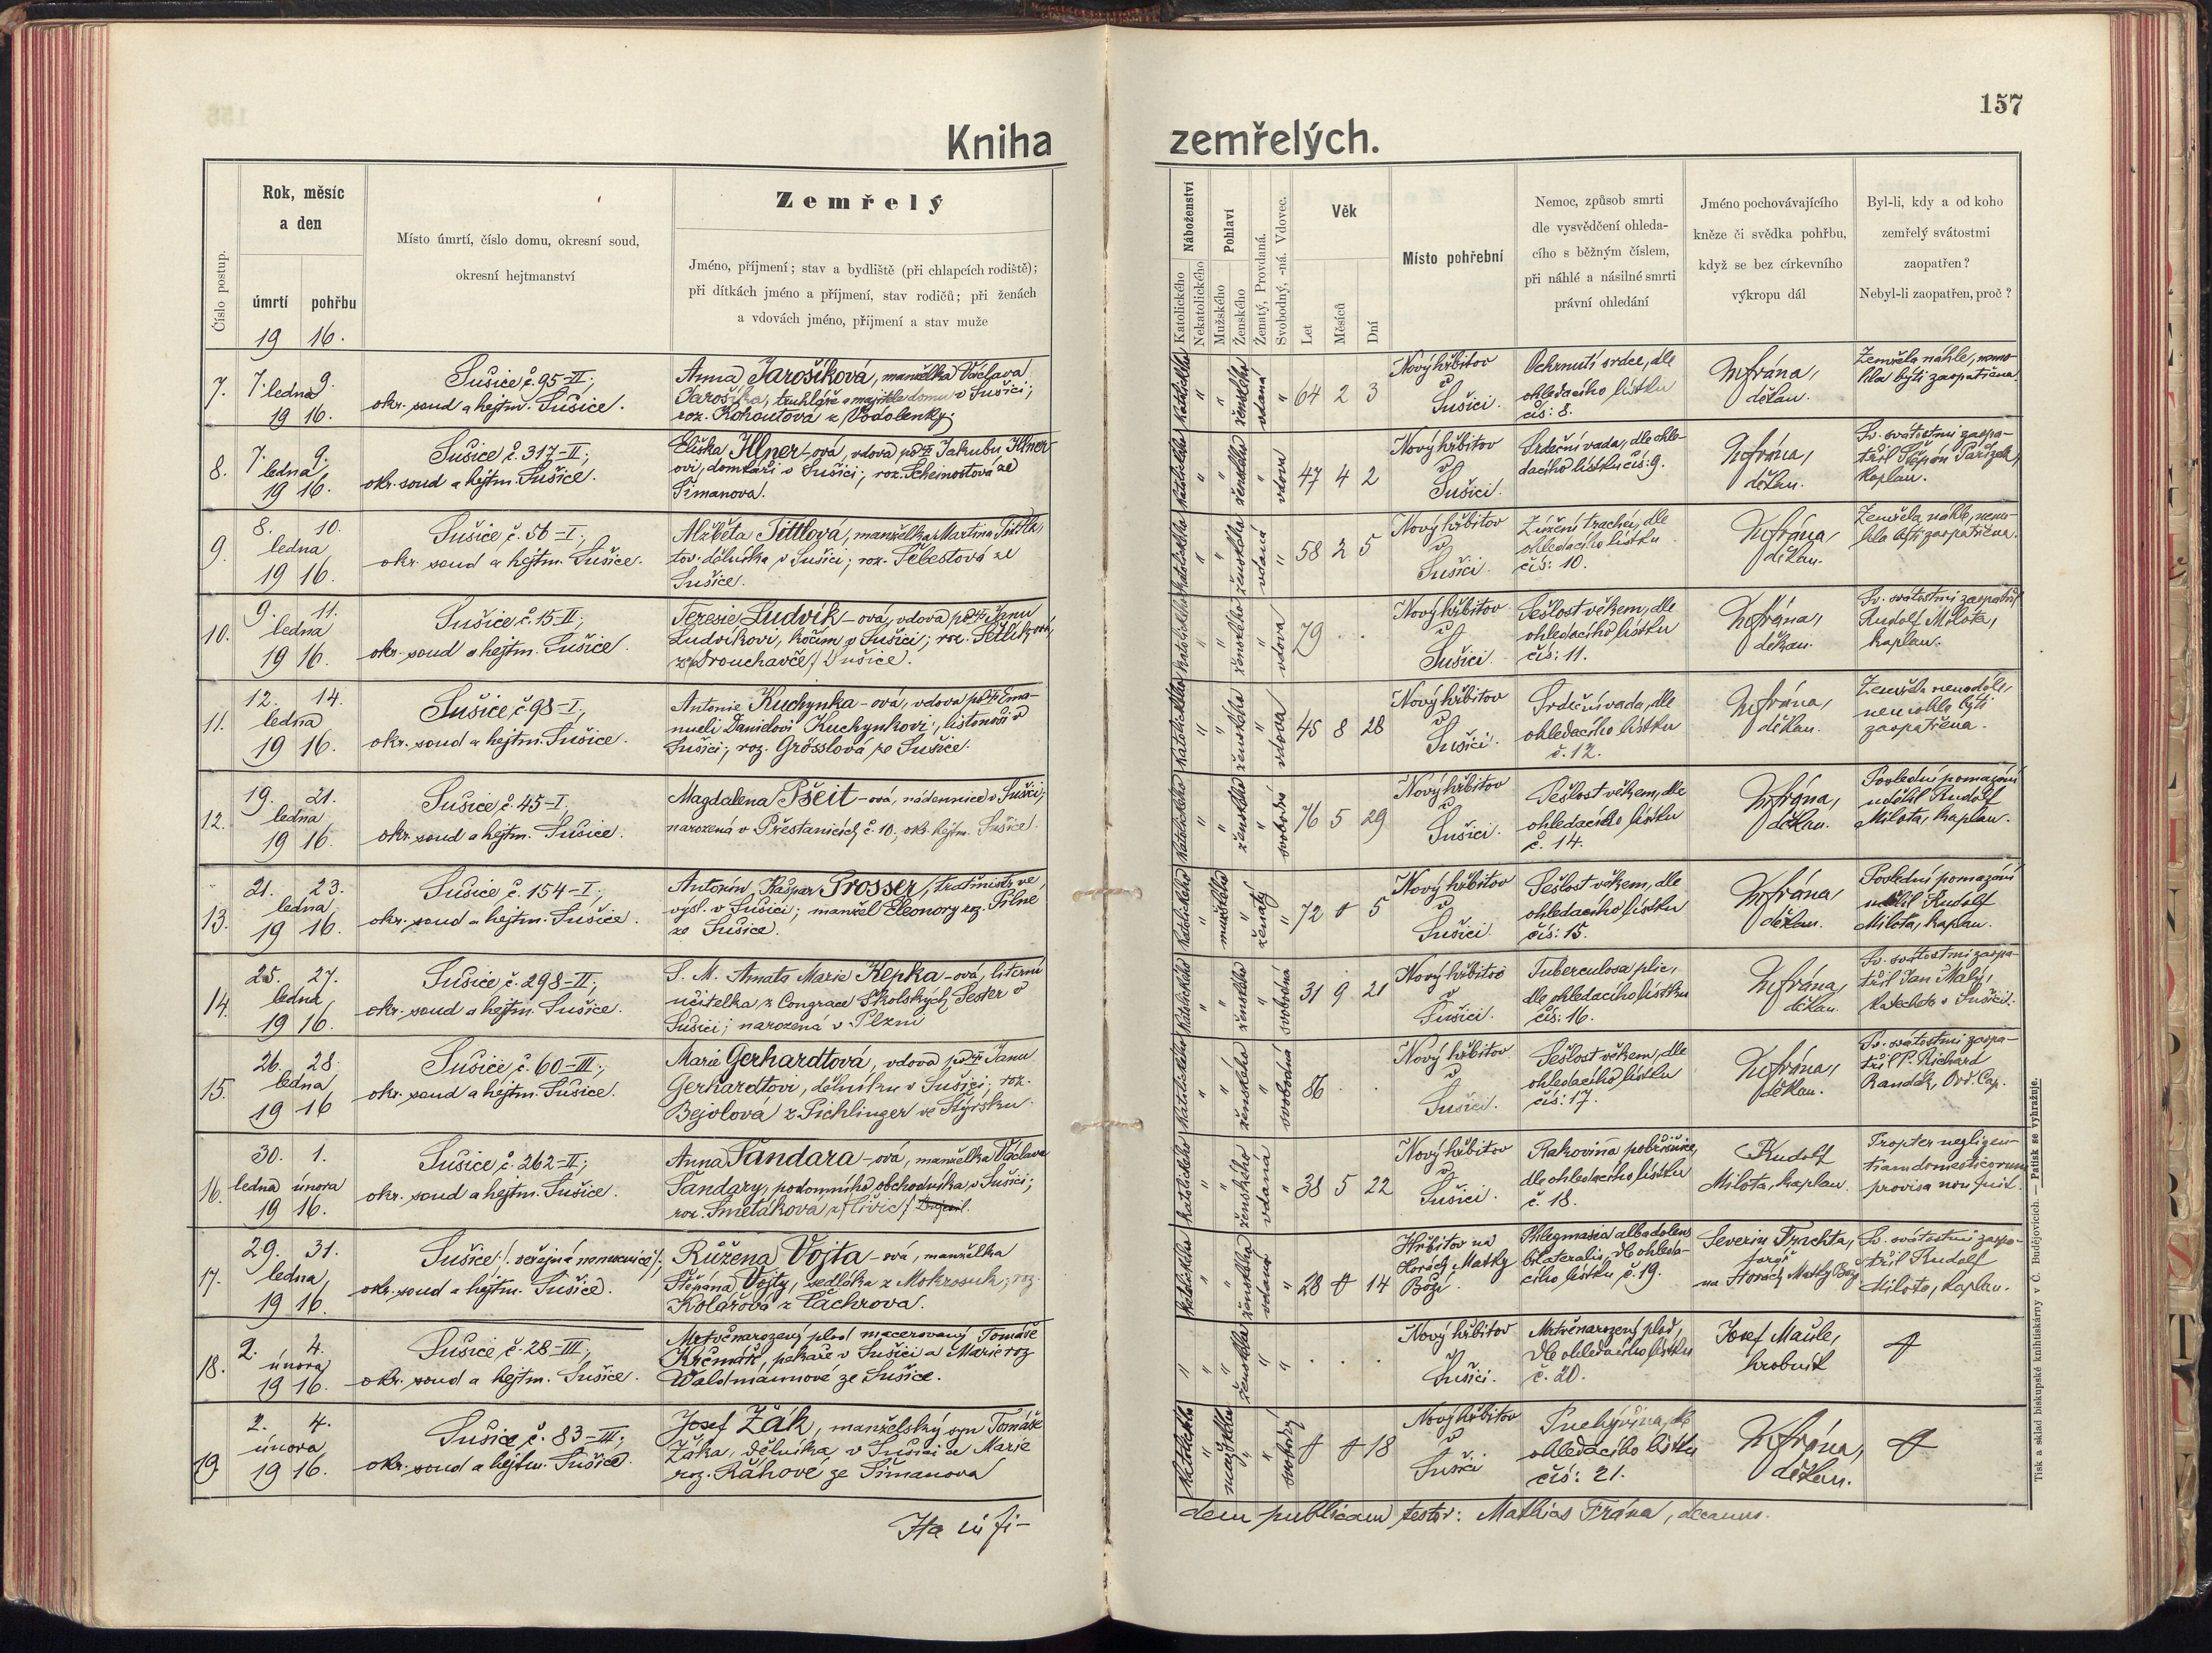 157
Kniha
zemřelých.
Číslo postup.
Rok, měsíc
a den
úmrtí pohřbu
19 16.
Místo úmrtí, číslo domu, okresní soud,
okresní hejtmanství
Zemřelý
Jméno, příjmení; stav a bydliště (při chlapcích rodiště);
při dítkách jméno a příjmení, stav rodičů; při ženách
a vdovách jméno, příjmení a stav muže
Náboženství
Katolického
Nekatolického
Pohlaví
Mužského
Ženského
Ženatý, Provdaná.
Svobodný, -ná. Vdovec.
Věk
Let
Měsíců
Dní
Místo pohřební
Nemoc, způsob smrti
dle vysvědčení ohleda-
cího s běžným číslem,
při náhlé a násilné smrti
právní ohledání
Jméno pochovávajícího
kněze či svědka pohřbu,
když se bez církevního
výkropu dál
Byl-li, kdy a od koho
zemřelý svátostmi
zaopatřen?
Nebyl-li zaopatřen, proč?
7.
7. 9.
ledna
19 16.
Sušice č. 95-II;
okr. soud a hejtm. Sušice.
Anna Jarošíková, manželka Václava
Jarošíka, truhláře a majitele domu v Sušici;
roz. Kohoutová z Vodolenky.
Katolického " " ženského vdaná " 64 2 3
Nový hřbitov
v
Sušici.
Ochrnutí srdce, dle
ohledacího lístku
čís: 8.
M Frána,
děkan.
Zemřela náhle, nemo-
hla býti zaopatřena.
8.
7. 9.
ledna
19 16.
Sušice č. 317-II;
okr. soud a hejtm. Sušice.
Eliška Illner-ová, vdova po Jakubu Illner-
ovi, domkáři v Sušici; roz. Scheinostová ze
Šimanova.
Katolického " " ženského " vdova 47 4 2
Nový hřbitov
v
Sušici.
Srdeční vada, dle ohle-
dacího lístku čís: 9.
M Frána,
děkan.
Sv. svátostmi zaopa-
třil Štěpán Pařízek,
kaplan.
9.
8. 10.
ledna
19 16.
Sušice, č. 56-I;
okr. soud a hejtm. Sušice.
Alžběta Tittlová, manželka Martina Tittla,
tov. dělníka v Sušici; roz. Šebestová ze
Sušice.
Katolického " " ženského vdaná " 58 2 5
Nový hřbitov
v
Sušici.
Zúžení trachey, dle
ohledacího lístku
čís: 10.
M Frána,
děkan.
Zemřela náhle, nemo-
hla býti zaopatřena.
10.
9. 11.
ledna
19 16.
Sušice č. 15-II;
okr. soud a hejtm. Sušice.
Teresie Ludvík-ová, vdova po Janu
Ludvíkovi, kočím v Sušici; roz.
Sušice.
Katolického " " ženského " vdova 79 . .
Nový hřbitov
v
Sušici.
Sešlost věkem, dle
ohledacího lístku
čís: 11.
M Frána,
děkan.
Sv. svátostmi zaopatřil
Rudolf Milota,
kaplan.
11.
12. 14.
ledna
19 16.
Sušice, č. 98-I;
okr. soud a hejtm. Sušice.
Antonie Kuchynka-ová, vdova po Ema-
nueli Danielovi Kuchynkovi, listonoši v
Sušici; roz. Grösslová ze Sušice.
Katolického " " ženského " vdova 45 8 28
Nový hřbitov
v
Sušici.
Srdeční vada, dle
ohledacího lístku
č. 12.
M Frána,
děkan.
Zemřela nenadále,
nemohla býti
zaopatřena.
12.
19. 21.
ledna
19 16.
Sušice, č. 45-I;
okr. soud a hejtm. Sušice.
Magdalena Pšeit-ová, nádennice v Sušici;
narozená v Přestanicích č. 10, okr. hejtm. Sušice.
Katolického " " ženského " svobodná 76 5 29
Nový hřbitov
v
Sušici.
Sešlost věkem, dle
ohledacího lístku
č. 14.
M Frána,
děkan.
Poslední pomazání
udělil Rudolf
Milota, kaplan.
13.
21. 23.
ledna
19 16.
Sušice č. 154-I;
okr. soud a hejtm. Sušice.
Antonín Kašpar Prosser, traťmistr ve
výsl. v Sušici; manžel Eleonory roz. Pilné
ze Sušice.
Katolického " mužského " ženatý " 72 0 5
Nový hřbitov
v
Sušici.
Sešlost věkem, dle
ohledacího lístku
čís: 15.
M Frána,
děkan.
Poslední pomazání
udělil Rudolf
Milota, kaplan.
14.
25. 27.
ledna
19 16.
Sušice č. 298-II;
okr. soud a hejtm. Sušice.
S. M. Amata Marie Kepka-ová, literní
učitelka z Congrace Školských Sester v
Sušici; narozená v Plzni
Katolického " " ženského " svobodná 31 9 21
Nový hřbitov
v
Sušici.
Tuberculosa plic,
dle ohledacího lístku
čís: 16.
M Frána,
děkan.
Sv. svátostmi zaopa-
třil Jan Malý,
katecheta v Sušici.
15.
26. 28.
ledna
19 16
Sušice č. 60-III;
okr. soud a hejtm. Sušice.
Marie Gerhardtová, vdova po Janu
Gerhardtovi, dělníku v Sušici; roz.
Bejolová z Pichlinger ve Štýrsku.
Katolického " " ženského " svobodná 86 . .
Nový hřbitov
v
Sušici.
Sešlost věkem, dle
ohledacího lístku
čís: 17.
M Frána,
děkan.
Sv. svátostmi zaopa-
třil P. Richard
Randák, Ord. Cap.
16.
30. 1.
ledna února
19 16.
Sušice č. 262-II;
okr. soud a hejtm. Sušice.
Anna Šandara-ová, manželka Václava
Šandary, podomního obchodníka v Sušici;
roz. Smetáková
Katolického " " ženského vdaná " 38 5 22
Nový hřbitov
v
Sušici.
Rakovina pobřišnice,
dle ohledacího lístku
č. 18.
Rudolf
Milota, kaplan.
Propter negligen-
tiam domesticorum
provisa non fuit.
17.
29. 31.
ledna
19 16.
Sušice /: veřejná nemocnice :/;
okr. soud a hejtm. Sušice.
Růžena Vojta-ová, manželka
Štěpána Vojty, sedláka z Mokrosuk; roz.
Kolářová z Čachrova.
Katolického " " ženského vdaná " 28 0 14
Hřbitov na
Horách Matky
Boží.
Phlegmasia alba dolens
bilateralis, dle ohleda-
cího lístku č. 19.
Severin Trachta,
farář
na Horách Matky Boží
Sv. svátostmi zaopa-
třil Rudolf
Milota, kaplan.
18.
2. 4.
února
19 16.
Sušice, č. 28-III;
okr. soud a hejtm. Sušice.
Mrtvěnarozený plod macerovaný Tomáše
Krčmář, pekaře v Sušici a Marie roz.
Waldmannové ze Sušice.
" " " ženského " " . . .
Nový hřbitov
v
Sušici.
Mrtvěnarozený plod,
dle ohledacího lístku
č. 20.
Josef Mašle,
hrobník
19.
2. 4.
února
19 16.
Sušice, č. 83-III;
okr. soud a hejtm. Sušice.
Josef Žák, manželský syn Tomáše
Žáka, dělníka v Sušici a Marie
roz. Ráhové ze Šimanova
Katolického " mužského " " svobodný 0 0 18
Nový hřbitov
v
Sušici
Puchýřina, dle
ohledacího lístku
čís: 21.
M Frána,
děkan.
Ita in fi-
dem publicam testor: Mathias Frána, decanus.
Tisk a sklad biskupské knihtiskárny v Č. Budějovicích. — Patisk se vyhražuje.